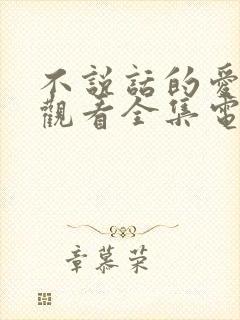 不説話的愛
觀看全集電
章慕荣